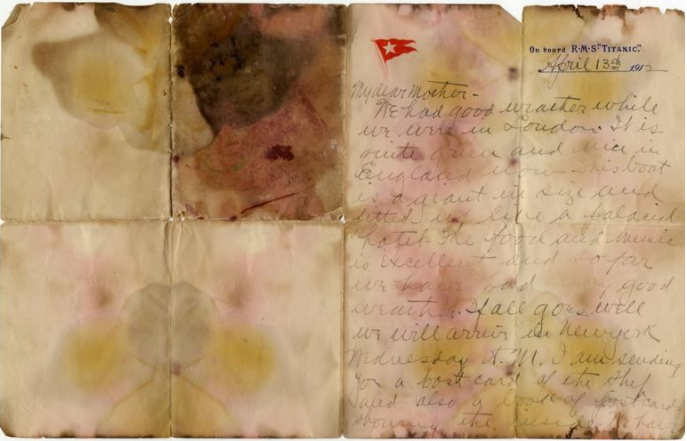 On board R·M·S "TITANIC".
April 13th 1912
My dear Mother-
We had good weather while
we were in London. It is
quite green and nice in
England now. This boat
is a giant in size and
fitted up like a palacial
hotel. The food and music
is excellent and so far
we have had very good
weather. If all goes well
we will arrive in New york
Wednesday A.M. I am sending
you a post card of the ship
and also a book of postcards
showing the inside